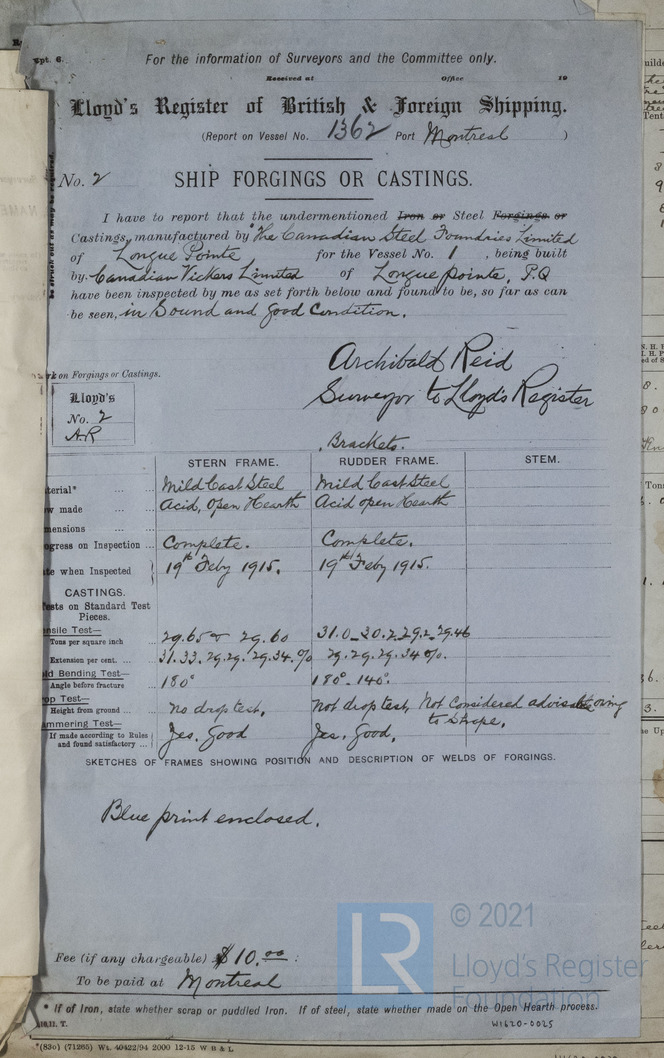 pt. 6.
For the information of Surveyors and the Committee only.
Received at Office 19
Lloyd's Register of British & Foreign Shipping.
(Report on Vessel No. 1362 Port Montreal )
No. 2 SHIP FORGINGS OR CASTINGS.
be struck out as may be required.
I have to report that the undermentioned Iron or Steel Forgings or
Castings, manufactured by The Canadian Steel Foundries Limited
of Longue Pointe for the Vessel No. 1, being built
by Canadian Vickers Limited of Longue pointe, P.Q
have been inspected by me as set forth below and found to be, so far as can
be seen, in Sound and good Condition.
Archibald Reid
Surveyor to Lloyd's Register
rk on Forgings or Castings.
Lloyd's
No. 2
AR
Brackets.
STERN FRAME. RUDDER FRAME. STEM.
terial* Mild Cast Steel Mild Cast Steel
w made Acid, Open Hearth Acid open Hearth
mensions
ogress on Inspection Complete. Complete.
te when Inspected 19th Feby 1915. 19th Feby 1915.
CASTINGS.
ests on Standard Test
Pieces.
ensile Test—
Tons per square inch 29.65 29.60 31.0 30.2 29.2 29.46
Extension per cent. 31.33.29.29.29.34.% 29.29.29.34%.
ld Bending Test—
Angle before fracture 180° 180° 140°.
op Test—
Height from ground no drop test. Not drop test, Not Considered advisable owing
to Shape.
ammering Test—
If made according to Rules Yes. Good Yes. Good.
and found satisfactory
SKETCHES OF FRAMES SHOWING POSITION AND DESCRIPTION OF WELDS OF FORGINGS.
Blue print enclosed.
Fee (if any chargeable) $10.00 :
To be paid at Montreal
* If of Iron, state whether scrap or puddled Iron. If of steel, state whether made on the Open Hearth process.
W1620-0025
(830) (71265) Wt. 40422/94 2000 12-15 W B & L
LR
© 2021
Lloyd's Register
Foundation